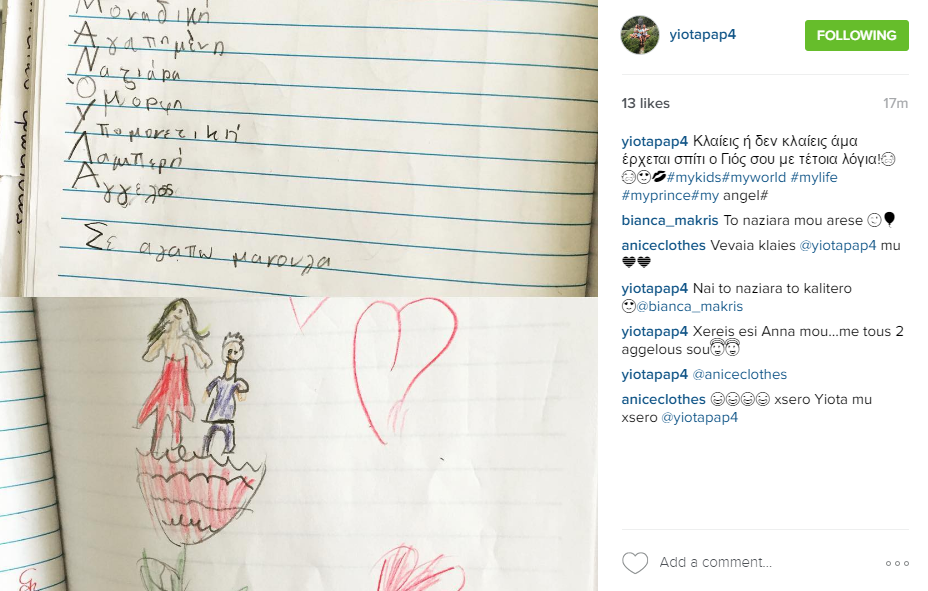 Μοναδική
Αγαπημένη
Ναζιάρα
Όμορφη
Υπομονετική
Λαμπερή
Αγγελος
Σε αγαπω μανουλα
yiotapap4
FOLLOWING
13 likes
17m
yiotapap4 Κλαίεις ή δεν κλαίεις άμα
έρχεται σπίτι ο Γιός σου με τέτοια λόγια!😂
😂🙂💋#mykids#myworld #mylife
#myprince#my angel#
bianca_makris To naziara mou arese 😉🎈
aniceclothes Vevaia klaies @yiotapap4 mu
♥♥
yiotapap4 Nai to naziara to kalitero
🙂@bianca_makris
yiotapap4 Xereis esi Anna mou...me tous 2
aggelous sou😇😇
yiotapap4 @aniceclothes
aniceclothes 😄😄😄😄 xsero Yiota mu
xsero @yiotapap4
Add a comment...